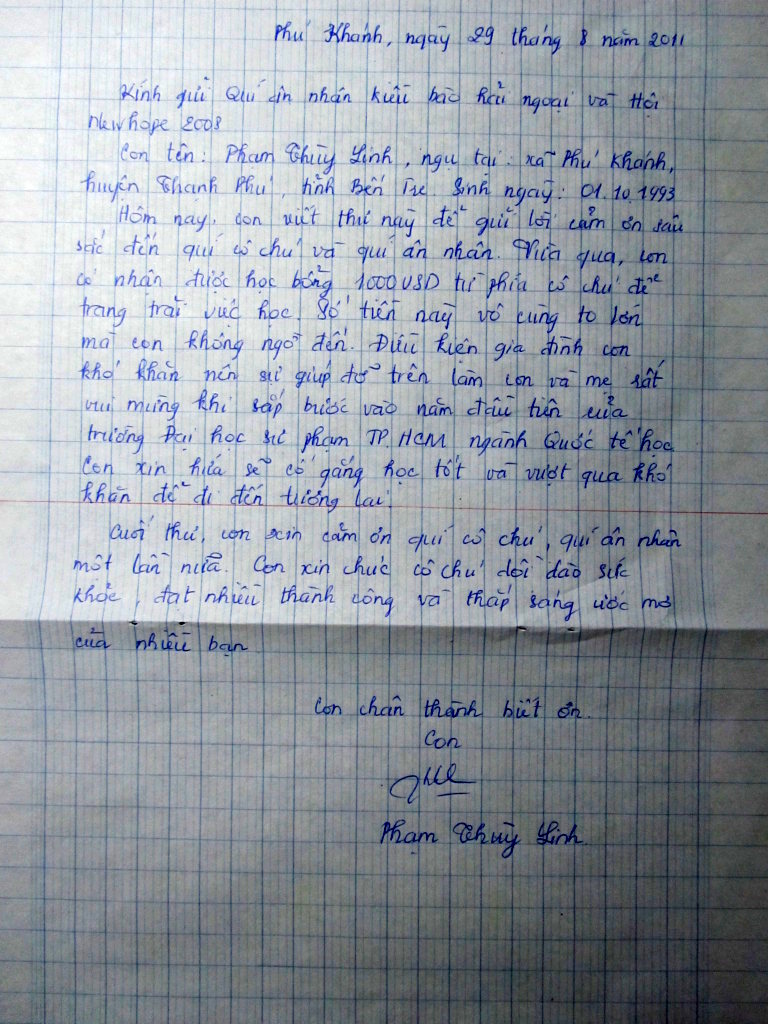 Phú Khánh, ngày 29 tháng 8 năm 2011
Kính gửi Quí ân nhân kiều bào hải ngoại và Hội
Newhope 2008
Con tên: Phạm Thùy Linh, ngụ tại: xã Phú Khánh,
huyện Thạnh Phú, tỉnh Bến Tre. Sinh ngày: 01.10.1993
Hôm nay, con viết thư này để gửi lời cảm ơn sâu
sắc đến quí cô chú và quí ân nhân. Vừa qua, con
có nhận được học bổng 1000 USD từ phía cô chú để
trang trãi việc học. Số tiền này vô cùng to lớn
mà con không ngờ đến. Điều kiện gia đình con
khó khăn nên sự giúp đỡ trên làm con và mẹ rất
vui mừng khi sắp bước vào năm đầu tiên của
trường Đại học sư phạm TP. HCM ngành Quốc tế học.
Con xin hứa sẽ cố gắng học tốt và vượt qua khó
khăn để đi đến tương lai.
Cuối thư, con xin cảm ơn quí cô chú, quí ân nhân
một lần nữa. Con xin chúc cô chú dồi dào sức
khỏe, đạt nhiều thành công và thắp sáng ước mơ
của nhiều bạn
Con chân thành biết ơn.
Con
Phạm Thùy Linh.